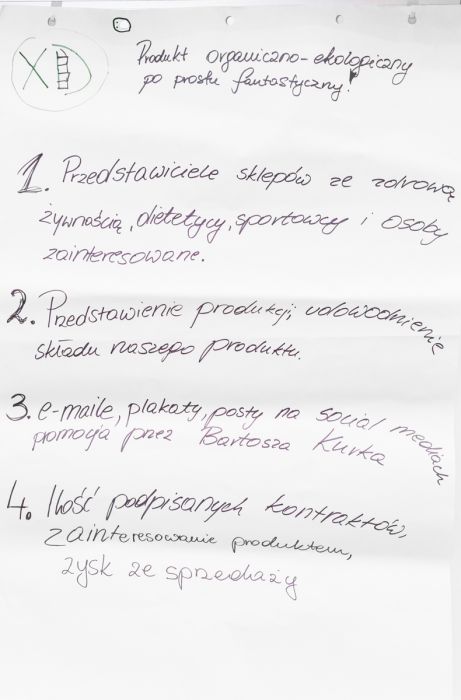 XD
Produkt organiczno-ekologiczny
po prostu fantastyczny!
1. Przedstawiciele sklepów ze zdrową
żywnością, dietetycy, sportowcy i osoby
zainteresowane.
2. Przedstawienie produkcji, udowodnienie
składu naszego produktu.
3. e-maile, plakaty, posty na social mediach
promocja przez Bartosza Kurka
4. Ilość podpisanych kontraktów,
zainteresowanie produktem,
zysk ze sprzedaży